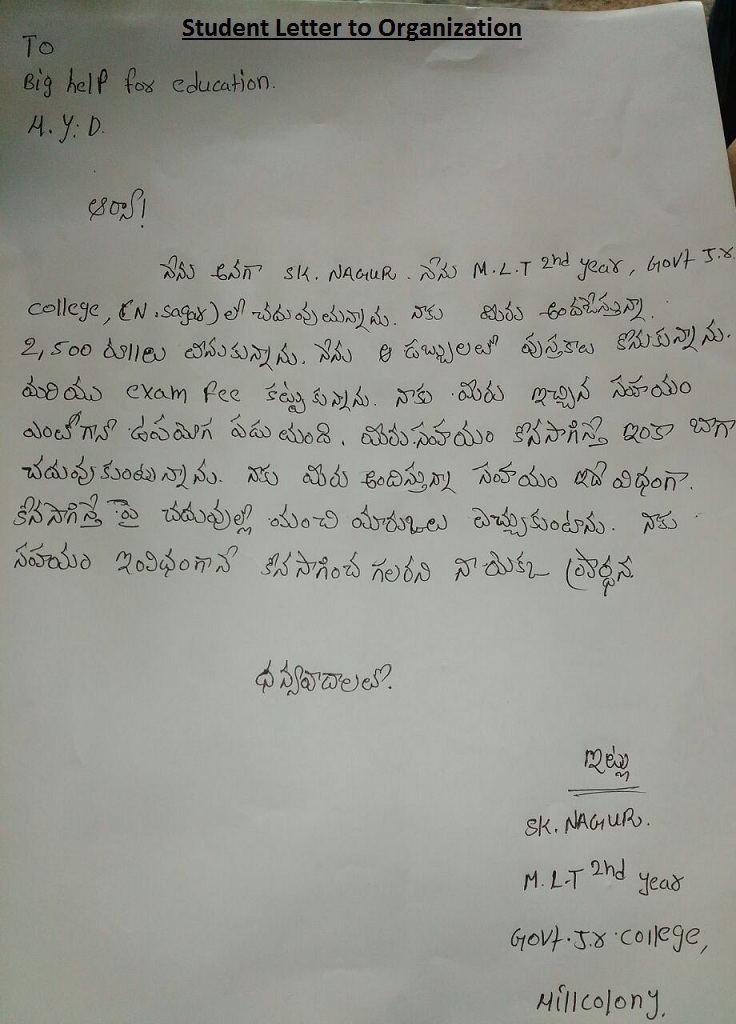 Student Letter to Organization
To
Big help for education.
H.Y.D.
ఆర్యా!
నేను అనగా SK. NAGUR. నేను M.L.T 2nd year, GOVT J.r
college, (N.sagar) లో చదువుతున్నాను. నాకు మీరు అందజేస్తున్నా.
2,500 రూ||లు తీసుకున్నాను. నేను ఆ డబ్బులలో పుస్తకాలు కొనుకున్నాను.
మరియు exam fee కట్టుకున్నాను. నాకు మీరు ఇచ్చిన సహయం
ఎంతోగానో ఉపయోగ పడుతుంది. మీరు సహయం కొనసాగిస్తే ఇంకా బాగా
చదువుకుంటున్నాను. నాకు మీరు అందిస్తున్నా సహయం ఇదే విధంగా.
కొనసాగిస్తే పై చదువుల్లో మంచి మారుకులు తెచ్చుకుంటాను. నాకు
సహయం ఇంవిధంగానే కొనసాగించ గలరని నా యొక్క ప్రార్థన
ధన్యవాదాలతో.
ఇట్లు
SK. NAGUR.
M.L.T 2nd year
GOVT. J.r college,
Millcolony.